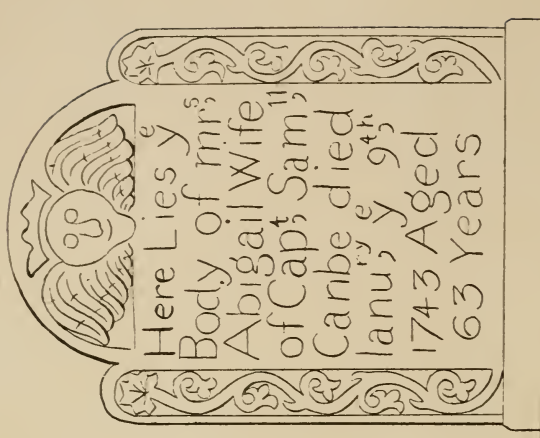 Here Lies yᵉ
Body of mrˢ,
Abigail Wife
of Capᵗ, Samˡˡ,
Canbe died
Ianuʳʸ, yᵉ 9ᵗʰ,
1743 Aged
63 Years